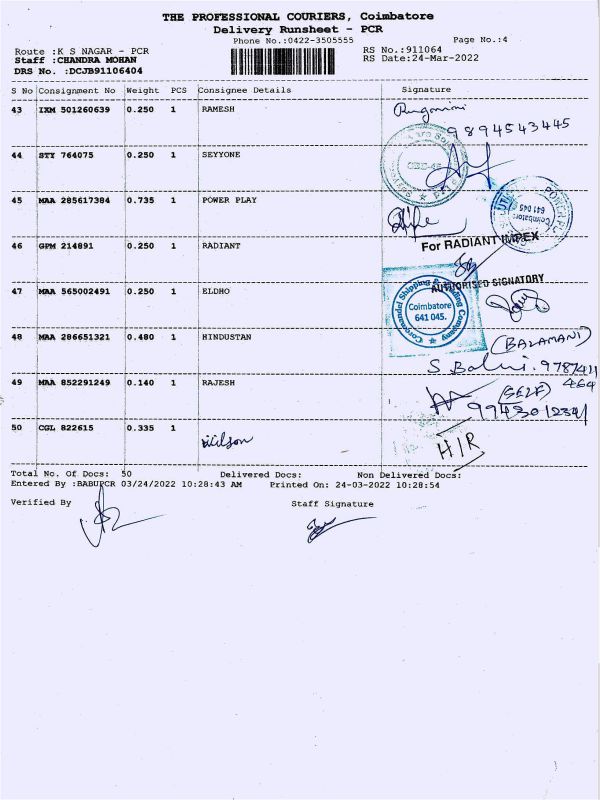 THE PROFESSIONAL COURIERS, Coimbatore
Delivery Runsheet - PCR
Phone No.:0422-3505555
Page No.:4
Route :K S NAGAR - PCR
RS No.:911064
Staff :CHANDRA MOHAN
RS Date:24-Mar-2022
DRS No. :DCJB91106404
S No Consignment No Weight PCS Consignee Details Signature
43 IXM 501260639 0.250 1 RAMESH
9894543445
44 STY 764075 0.250 1 SEYYONE
45 MAA 285617384 0.735 1 POWER PLAY
Coimbatore
641 045
46 GPM 214891 0.250 1 RADIANT
For RADIANT IMPEX
AUTHORISED SIGNATORY
47 MAA 565002491 0.250 1 ELDHO
Coromandel Shipping & Trading Company
Coimbatore
641 045.
48 MAA 286651321 0.480 1 HINDUSTAN
(BALAMANI)
49 MAA 852291249 0.140 1 RAJESH
(SELF)
50 CGL 822615 0.335 1
Wilson
H/R
Total No. Of Docs: 50 Delivered Docs: Non Delivered Docs:
Entered By :BABUPCR 03/24/2022 10:28:43 AM Printed On: 24-03-2022 10:28:54
Verified By Staff Signature